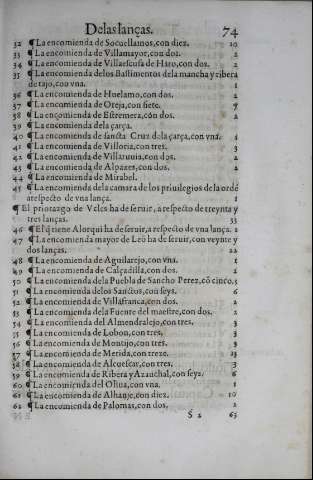 De las lanças. 74
32 ¶ La encomienda de Socuellamos, con diez. 10
33 ¶ La encomienda de Villamayor, con dos. 2
34 ¶ La encomienda de Villaescusa de Haro, con dos. 2
35 ¶ La encomienda delos Bastimentos dela mancha y ribera
de tajo, con vna. 1
36 ¶ La encomienda de Huelamo, con dos. 2
37 ¶ La encomienda de Oreja, con siete. 7
38 ¶ La encomienda de Estremera, con dos. 2
39 ¶ La encomienda dela çarça.
40 ¶ La encomienda de sancta Cruz dela çarça, con vna. 1
41 ¶ La encomienda de Villoria, con tres. 3
42 ¶ La encomienda de Villaruuia, con dos. 2
43 ¶ La encomienda de Alpazes, con dos. 2
44 ¶ La encomienda de Mirabel.
45 ¶ La encomienda dela camara de los priuilegios de la ordē
a respecto de vna lança. 1
¶ El priorazgo de Vcles ha de seruir, a respecto de treynta y
tres lanças. 33
46 ¶ El q̃ tiene Alorqui ha de seruir, a respecto de vna lança. 1
47 ¶ La encomienda mayor de Leō ha de seruir, con veynte y
dos lanças. 22
48 ¶ La encomienda de Aguilarejo, con vna. 1
49 ¶ La encomienda de Calçadilla, con dos. 2
50 ¶ La encomienda dela Puebla de Sancho Perez, cō cinco. 5
51 ¶ La encomienda delos Sanctos, con seys. 6
52 ¶ La encomienda de Villafranca, con dos. 2
53 ¶ La encomienda dela Fuente del maestre, con dos. 2
54 ¶ La encomienda del Almendralejo, con tres. 3
55 ¶ La encomienda de Lobon, con tres. 3
56 ¶ La encomienda de Montijo, con tres. 3
57 ¶ La encomienda de Merida, con treze. 13
58 ¶ La encomienda de Alcuescar, con tres. 3
59 ¶ La encomienda de Ribera y Azauchal, con seys. 6
60 ¶ La encomienda del Oliua, con vna. 1
61 ¶ La encomienda de Alhanje, con diez. 10
62 ¶ La encomienda de Palomas, con dos. 2
S 2 63